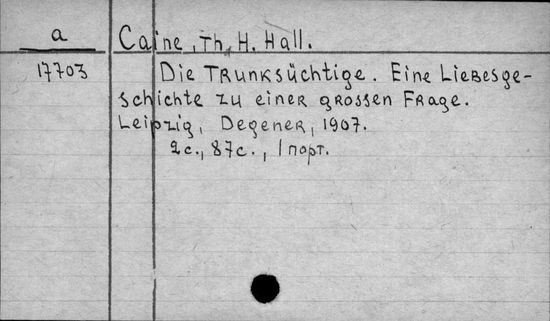 a
Caine, Th. H. Hall.
17703
Die Trunksüchtige. Eine Liebesge-
schichte zu einer grossen Frage.
Leipzig, Degener, 1907.
2 c., 87 c., 1 порт.